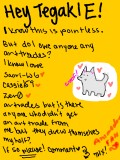 Hey TegakiE!
I know this is pointless.
But do I owe anyone any
art trades?
I know I owe
Saori-Li6
Cassie69
Zer0
art trades but is there
anyone who didn't get
an art trade from
me but they drew themselves
my half?
If so please! Comment